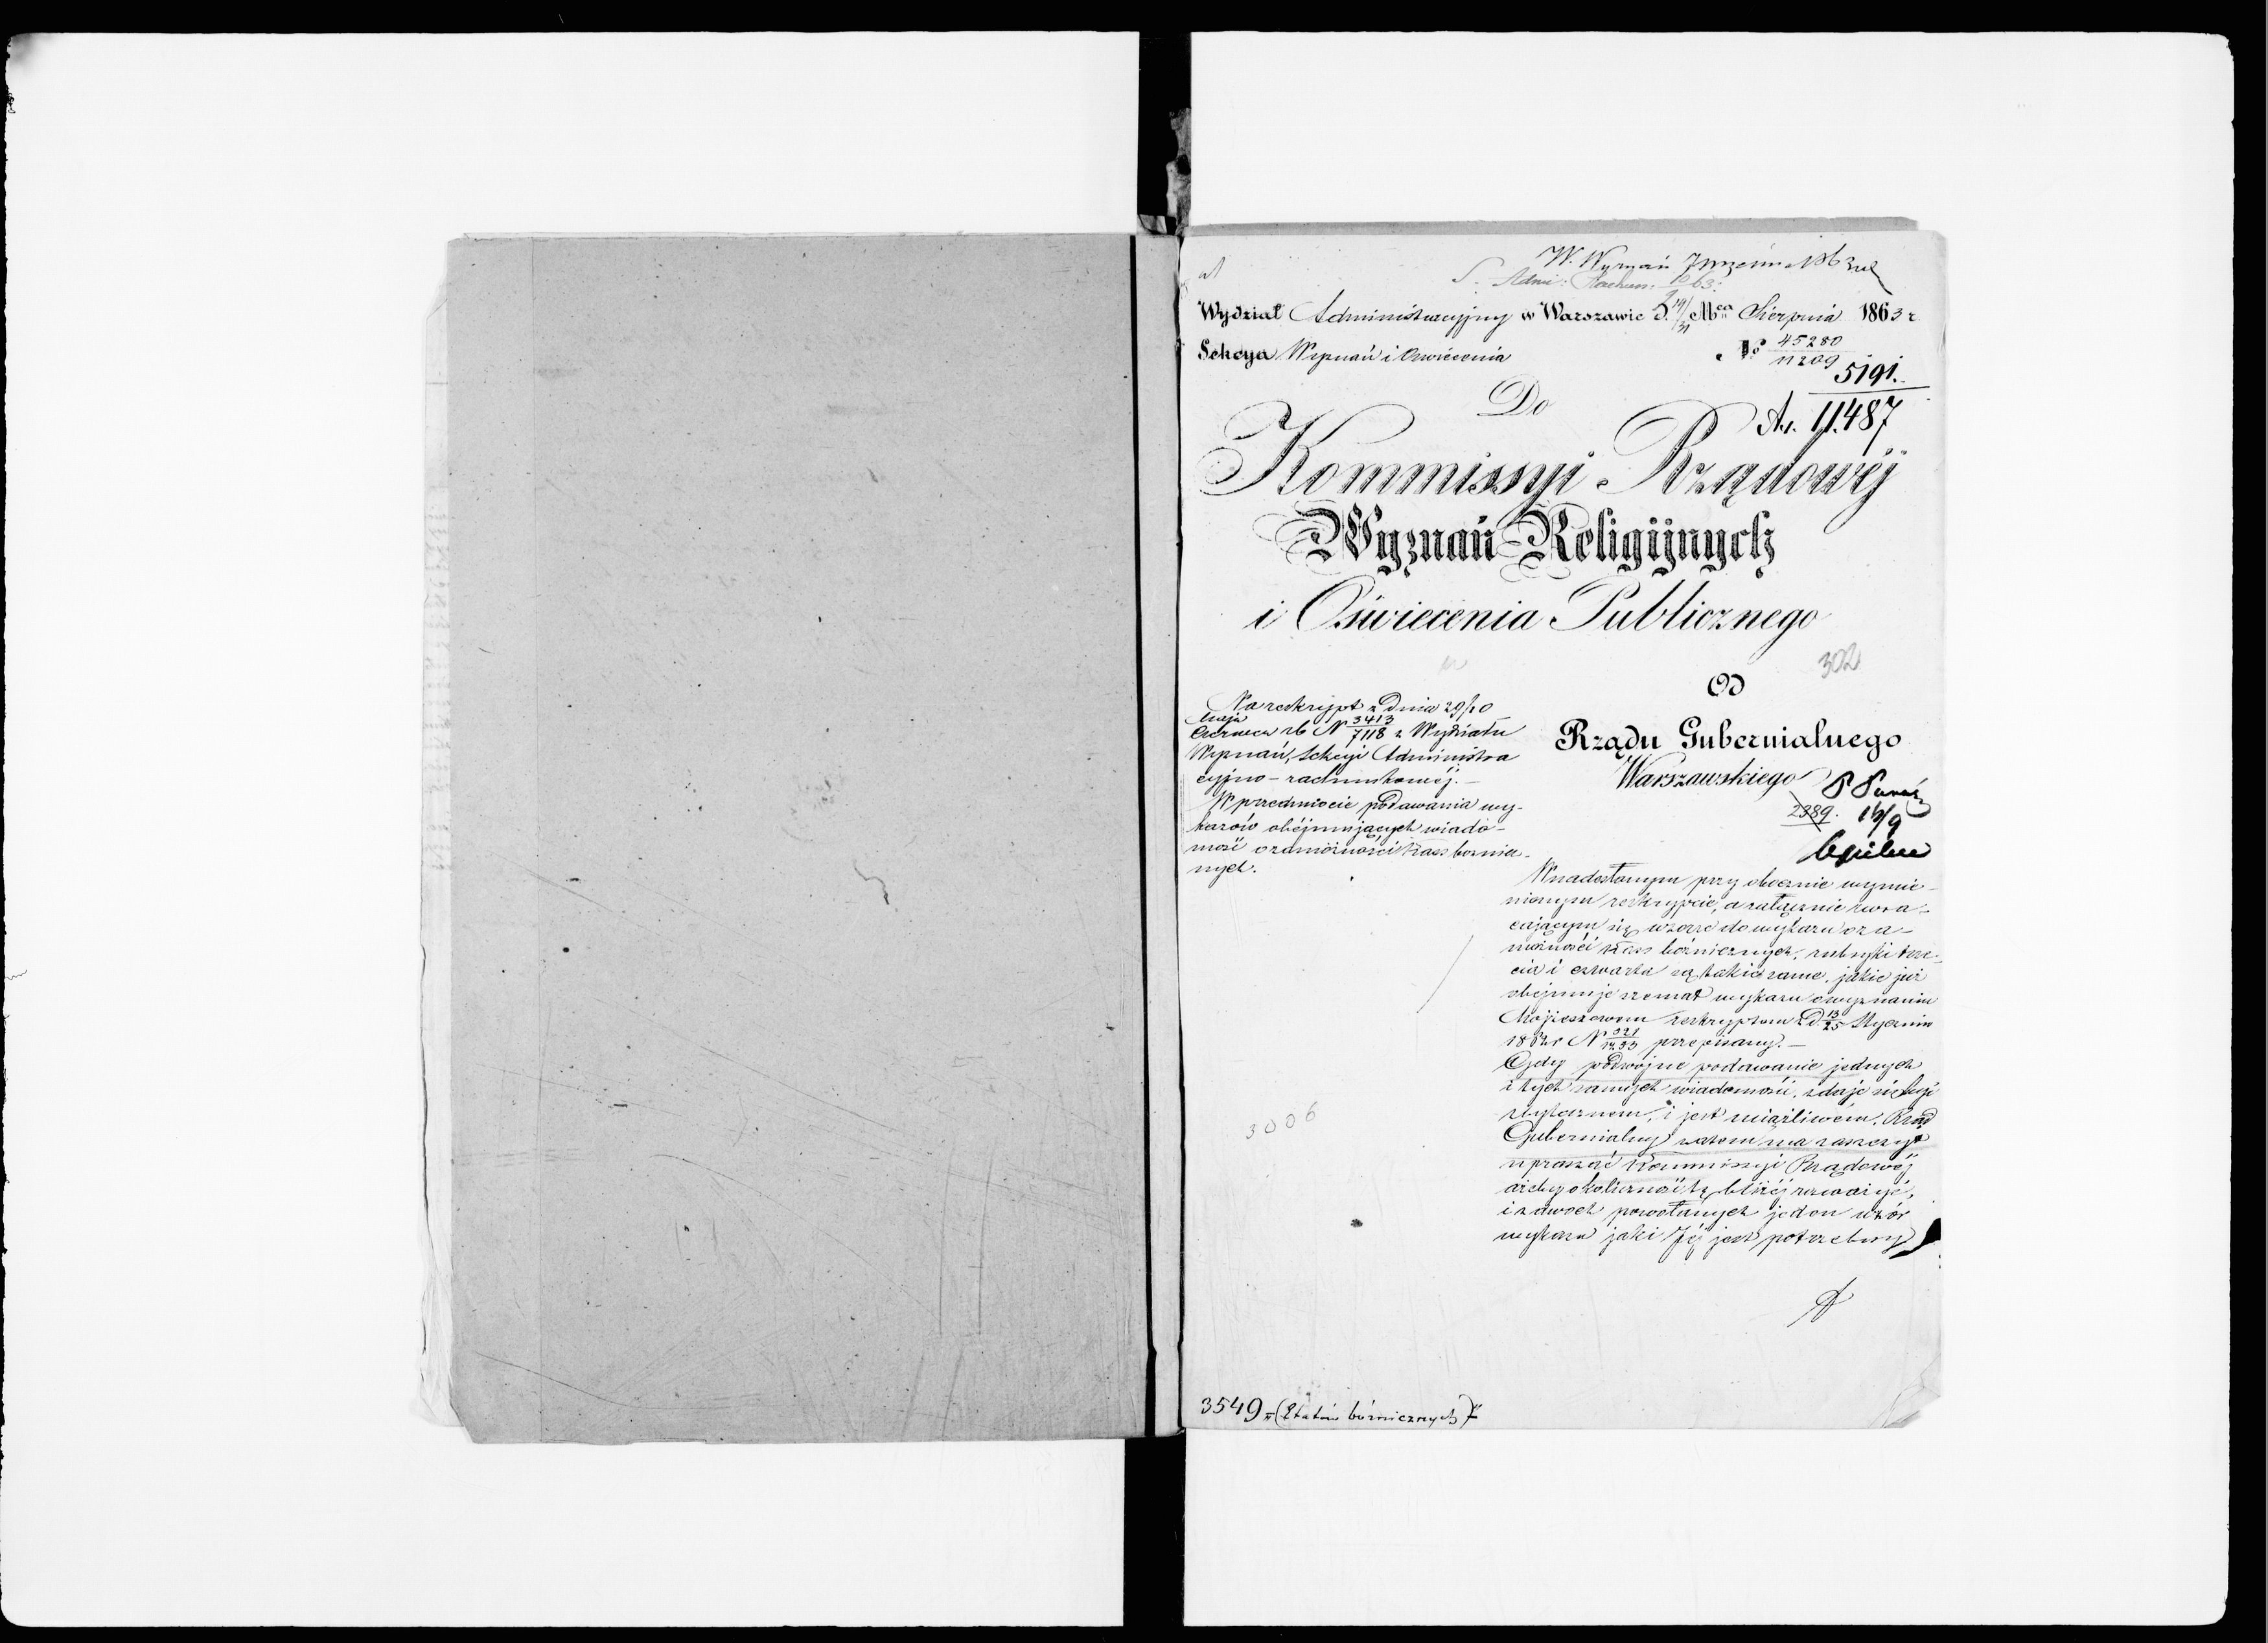 W. Wyznań
Wydział Administracyjny w Warszawie d. 19/31 Mca Sierpnia 1863 r.
Sekcya Wyznań i Oświecenia
No 45280
11209
5191.
Do
11487
Kommissyi Rządowéj
Wyznań Religijnych
i Oświecenia Publicznego
302
Od
Rządu Gubernialnego
Warszawskiego
2389. 16/9
Na reskrypt z Dnia 29/10
Maja
Czerwca rb N 3413/7118 z Wydziału
Wyznań, Sekcyi Administra
cyjno-rachunkowéj.-
W przedmiocie podawania wy-
kazów obéjmujących wiado-
mość o zamożności Kass bożnicz-
nych.
W nadesłanym przy obocznie wymie-
nionym reskrypcie, a załącznie zwra-
cającym się wzorze do wykazu o za-
możności Kass bożnicznych, rubryki trze-
cia i czwarta są takie same, jakie już
obejmuje szemat wykazu o wyznaniu
Mojżeszowem reskryptem z D. 13/25 Stycznia
N 321 przepisany.-
Gdy podwójne podawanie jednych
i tych samych wiadomości, zdaje się być
i jest uciążliwem, Rząd
Gubernialny zatem ma zaszczyt
upraszać Kommissyi Rządowéj
ażeby okoliczność tę bliżéj rozważyć,
i z dwóch powołanych jeden wzór
wykazu jaki Jéj jest potrzebny
3006
3549 (Etatów bóżnicznych)